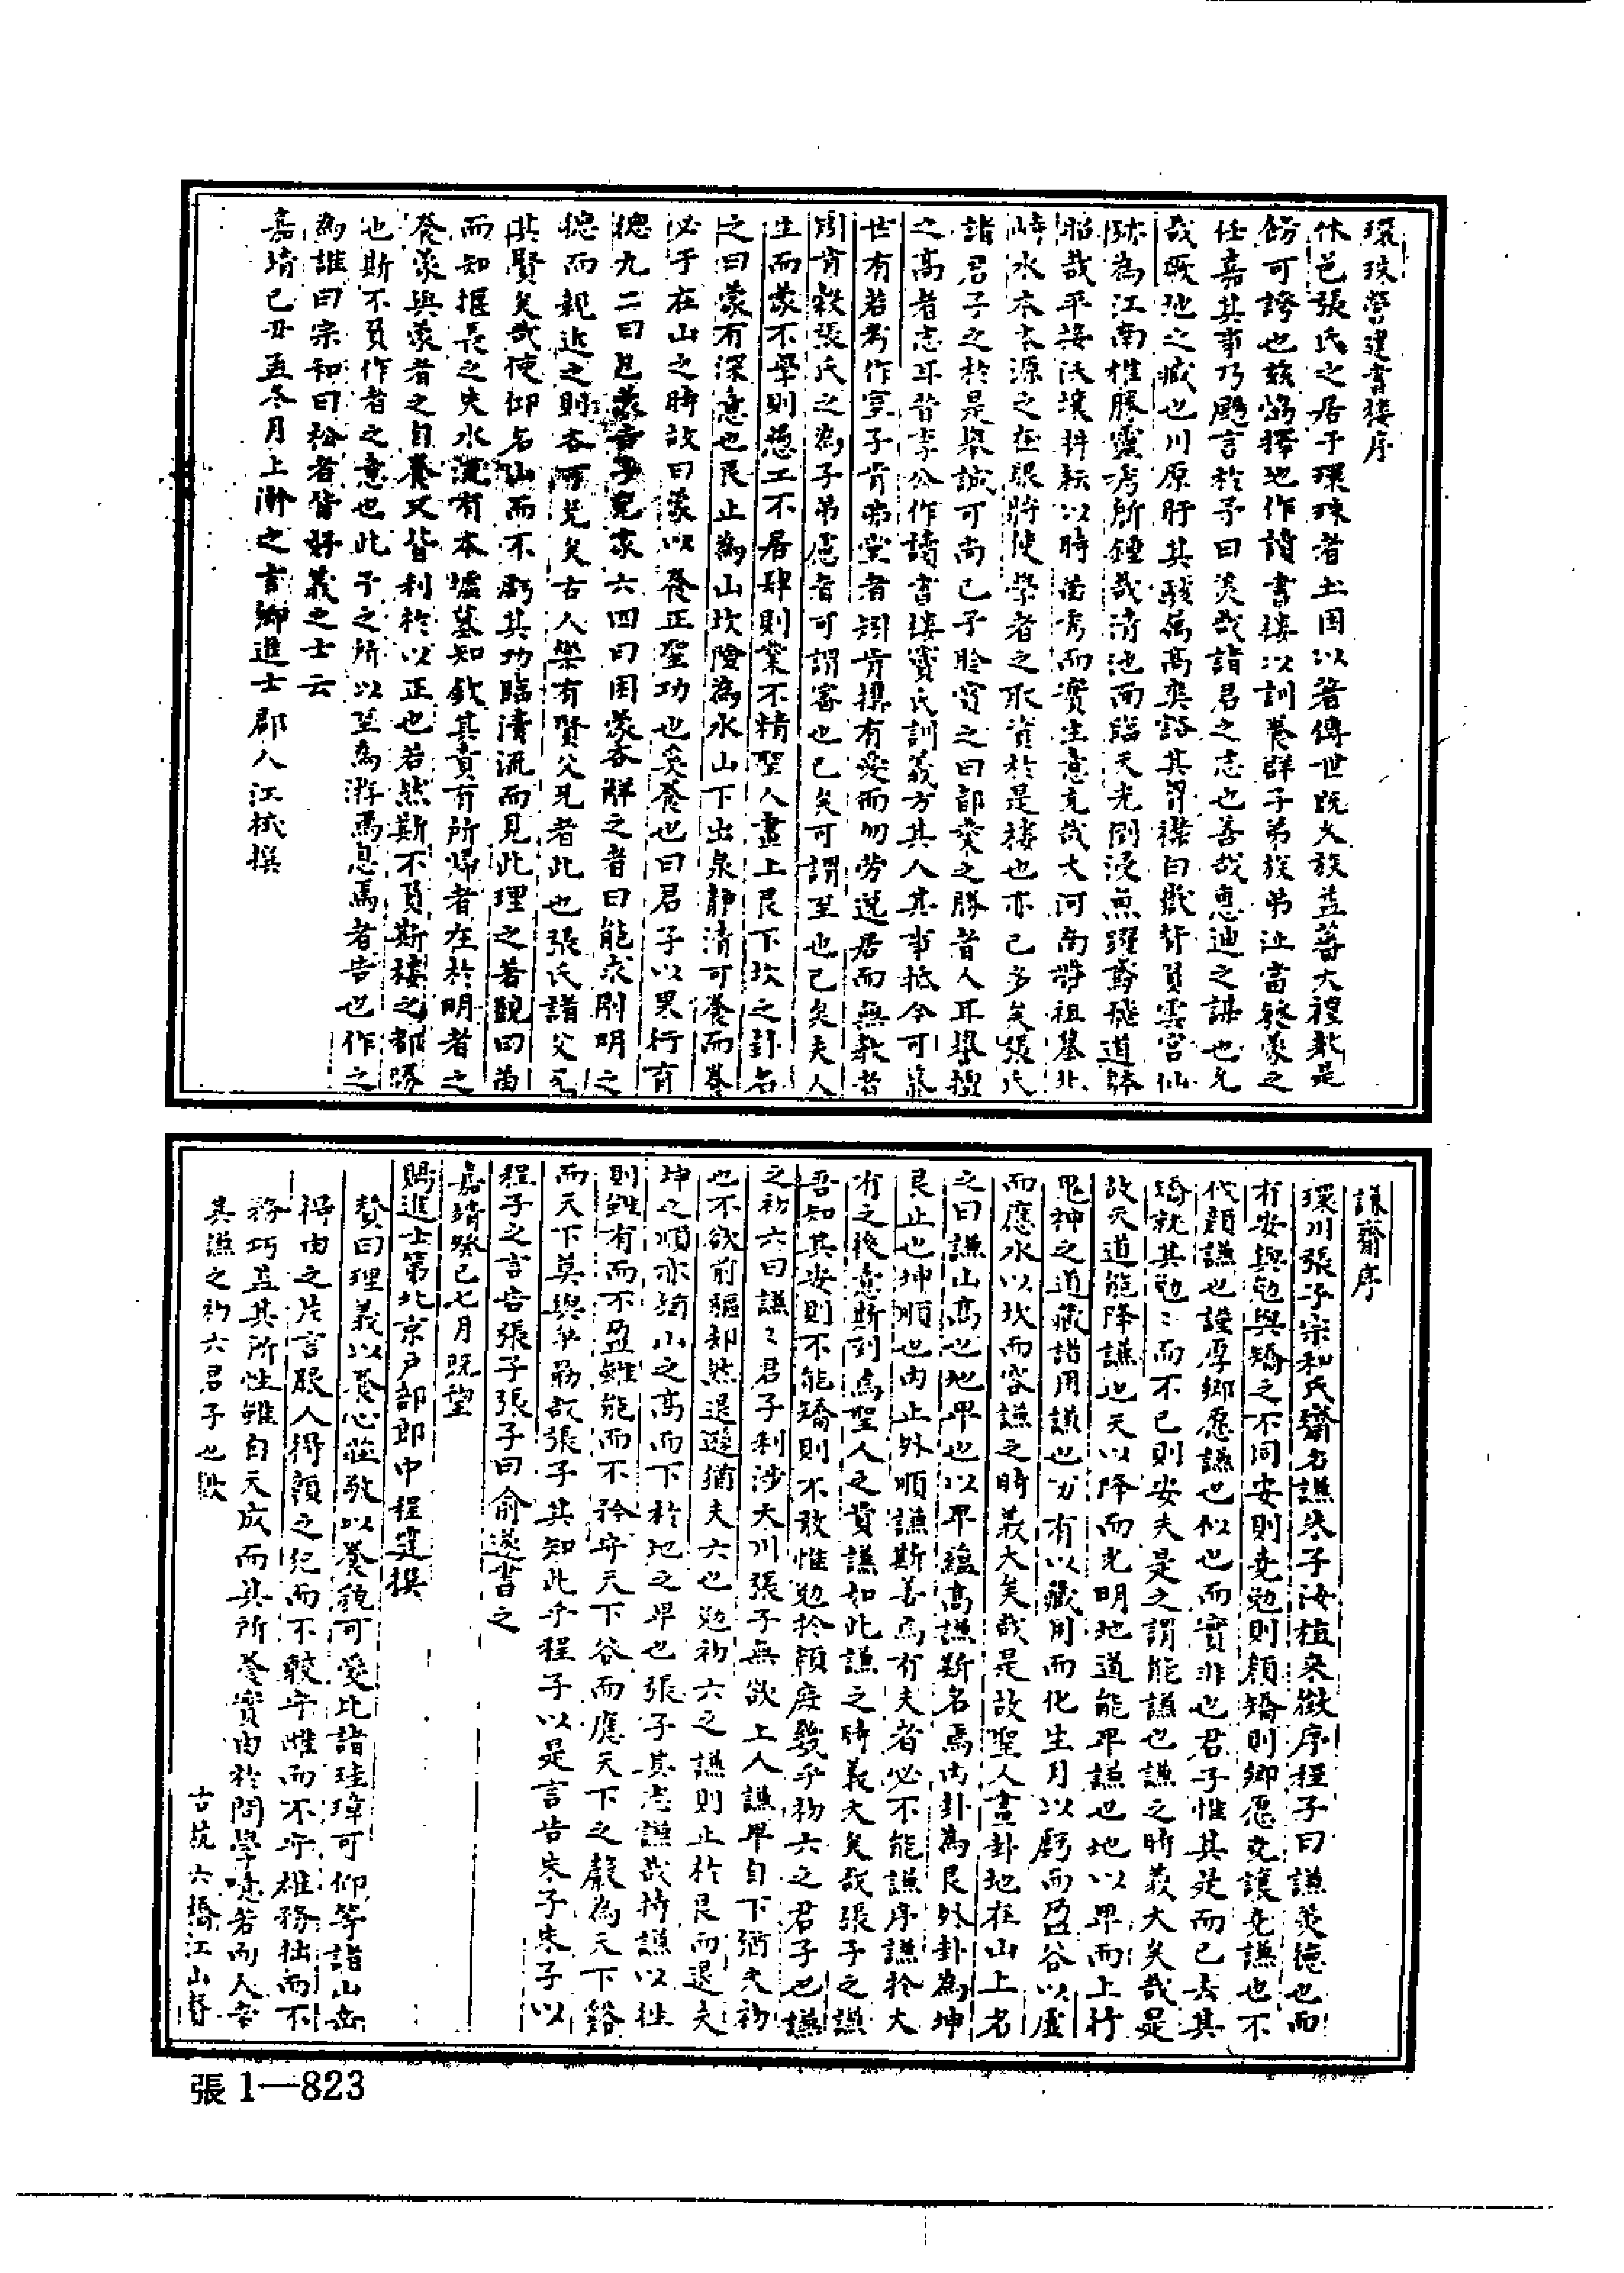 環珠營建書樓序
休邑張氏之居于環珠者土田以著傳世既久族益蕃大禮教是
飭可誇也茲協擇地作讀書樓以訓養群子弟族弟沚當發蒙之
任嘉其事乃颺言於予曰羙哉諸君之志也善哉惠迪之謀也允
哉厥地之臧也川原盱其 萬高奕谿其 襟曰嶽背負雲宮仙
為江南惟勝靈秀所鍾哉清池面臨天光倒浸魚躍鳶飛道體
昭哉平 沃壤耕耘以時苗秀而實生意充哉大河南帶祖墓北
峙水木本源之在眼將使學者之取資於是樓也亦已多矣張氏
諸君子之於是舉誠可尚已予聆實之曰都 之勝者人耳舉
之高者志耳昔李公作讀書樓竇氏訓義方其人其事抵今可慕
世有若考作室子肯堂者矧肯搆有愛而勿勞逸居而無教者
矧肯穀張氏之為子弟慮者可謂審也已矣可謂至也已矣夫人
生而蒙不學則愚工不居肆則業不精聖人畫上艮下坎之卦名
之曰蒙有深意也艮止為山坎險為水山下出泉靜清可養而養
必于在山之時故曰蒙以養正聖功也爰養也曰君子以果行育
德九二曰包蒙吉子克家六四曰困蒙吝解之者曰能求剛明之
德而親近之則吝可免矣古人樂有賢父兄者此也張氏諸父兄
其賢矣哉使仰名山而不虧其功臨清流而見此理之著觀田苗
而知揠長之失水流有本墟墓知欽其責有所歸者在於明者之
養蒙與蒙者之自養又皆利於以正也若然斯不負斯樓之都 
也斯不負作者之意也此予之所以至為游焉息焉者告也作之
為誰曰宗和曰松者皆好義之士云
嘉靖己丑孟冬月上澣之吉鄉進士郡人江 撰
謙齋序
環川張子宗和氏齋名謙朱子汝植來徵序程子曰謙美德也而
有安與勉與矯之不同安則堯勉則顏矯則鄉愿堯讓堯謙也不
伐顏謙也謹厚鄉愿謙也似也而實非也君子惟其是而已去其
矯就其勉〻而不已則安夫是之謂能謙也謙之時義大矣哉是
故天道能降謙也天以降而光明地道能卑謙也地以卑而上行
鬼神之道藏諸用謙也 有以藏用而化生月以虧而盈谷以虛
而應水以坎而容謙之時義大矣哉是故聖人畫卦地在山上名
之曰謙山高也地卑也以卑蘊高謙斯名焉內卦為艮外卦為坤
艮止也坤順也內止外順謙斯善焉有夫者必不能謙序謙於大
有之後意斯到焉聖人之貴謙如此謙之時義大矣哉張子之謙
吾知其安則不能矯則不敢惟勉於顏庶幾乎初六之君子也謙
之初六曰謙〻君子利涉大川張子無欲上人謙卑自下猶夫初
也不欲前驅卻然退遜猶夫六也勉初六之謙則止於艮而退夫
坤之順亦猶山之高而下於地之卑也張子其志謙哉持謙以往
則雖有而不盈雖能而不矜守天下谷而應天下之 為天下谿
而天下莫與爭 哉張子其知此乎程子以是言告朱子朱子以
程子之言告張子張子曰俞遂書之
嘉靖癸巳七月既望
賜進士第北京戶部郎中程霆撰
贊曰理義以養心莊敬以養貌可愛比諸珪璋可仰等諸山岳
得由之片言服人得顏之犯而不較守雌而不守雄務拙而不
務巧益其所性雖自天成而其所養實由於問學噫若而人者
其謙之初六君子也歟
古杭六橋江山 
張 1—823